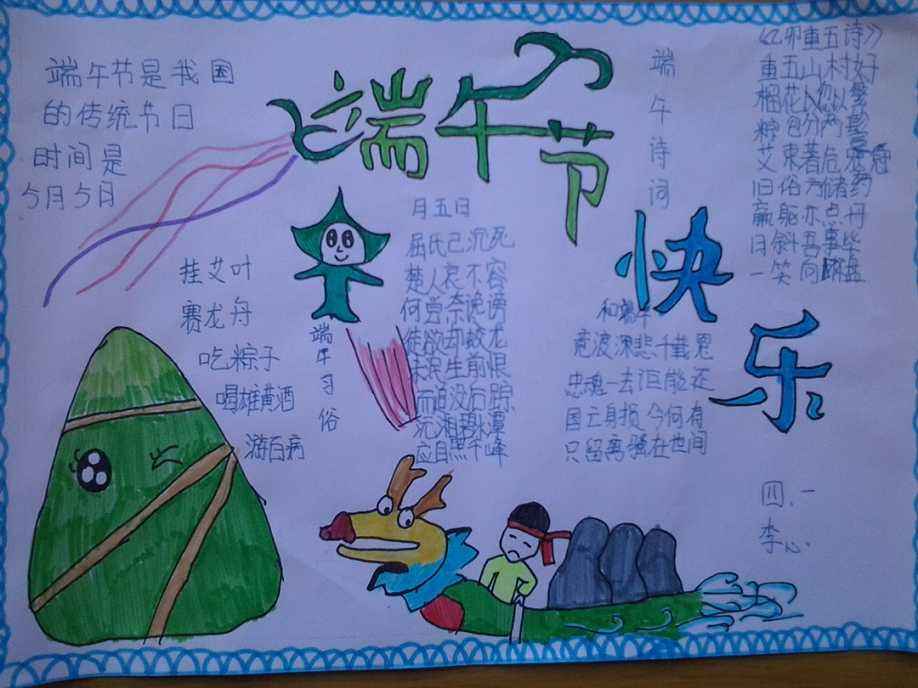 端午节是我国
的传统节日
时间是
5月5月
端午节
快
乐
挂艾叶
赛龙舟
吃粽子
喝雄黄酒
游百病
端午习俗
月五日
屈氏已沉死
楚人哀不容
何尝奈谗谤
徒欲却蛟龙
未泯生前恨
而追没后踪
沉湘碧水潭
应自照千峰
端午诗词
和端午
竞波深悲千载冤
忠魂一去讵能还
国亡身损今何有
只留离骚在世间
《乙卯重五诗》
重五山村好
榴花忽以繁
粽包分两髻
艾束著危冠
旧俗方储药
羸躯亦点丹
日斜吾事毕
一笑向杯盘
四.一
李心